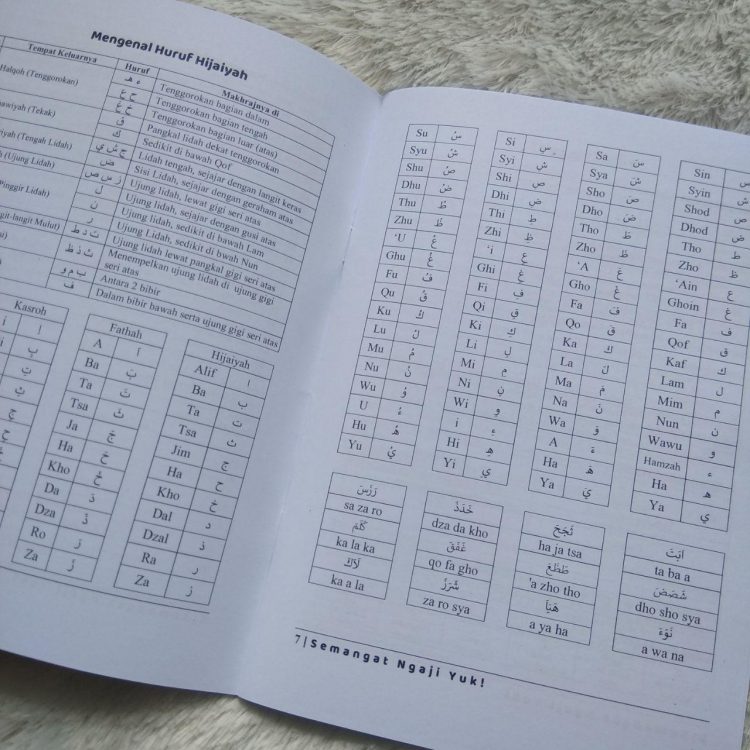 Mengenal Huruf Hijaiyah
Tempat Keluarnya | Huruf | Makhrajnya di
Halqoh (Tenggorokan) | ء ه | Tenggorokan bagian dalam
ح ع | Tenggorokan bagian tengah
خ غ | Tenggorokan bagian luar (atas)
(Tekak) | ق | Pangkal lidah dekat tenggorokan
ك | Sedikit di bawah Qof
(Tengah Lidah) | ج ش ي | Lidah tengah, sejajar dengan langit keras
ض | Sisi Lidah, sejajar dengan geraham atas
(Ujung Lidah) | ز س ص | Ujung lidah, lewat gigi seri atas
Pinggir Lidah) | ل | Ujung lidah, sejajar dengan gusi atas
ن | Ujung Lidah, sedikit di bawah Lam
ر | Ujung Lidah, sedikit di bwah Nun
langit Mulut) | ت د ط | Ujung lidah lewat pangkal gigi seri atas
ث ذ ظ | Menempelkan ujung lidah di ujung gigi seri atas
ب م و | Antara 2 bibir
ف | Dalam bibir bawah serta ujung gigi seri atas
Kasroh | Fathah | Hijaiyah
A | Alif | ا
Ba | بَ | Ba | ب
Ta | تَ | Ta | ت
Tsa | ثَ | Tsa | ث
Ja | جَ | Jim | ج
Ha | حَ | Ha | ح
Kho | خَ | Kho | خ
Da | دَ | Dal | د
Dza | ذَ | Dzal | ذ
Ro | رَ | Ra | ر
Za | زَ | Za | ز
Su | سُ | Si | سِ | Sa | سَ | Sin | س
Syu | شُ | Syi | شِ | Sya | شَ | Syin | ش
Shu | صُ | Shi | صِ | Sho | صَ | Shod | ص
Dhu | ضُ | Dhi | ضِ | Dho | ضَ | Dhod | ض
Thu | طُ | Thi | طِ | Tho | طَ | Tho | ط
Zhu | ظُ | Zhi | ظِ | Zho | ظَ | Zho | ظ
‘U | عُ | ‘i | عِ | ‘A | عَ | ‘Ain | ع
Ghu | غُ | Ghi | غِ | Gho | غَ | Ghoin | غ
Fu | فُ | Fi | فِ | Fa | فَ | Fa | ف
Qu | قُ | Qi | قِ | Qo | قَ | Qof | ق
Ku | كُ | Ki | كِ | Ka | كَ | Kaf | ك
Lu | لُ | Li | لِ | La | لَ | Lam | ل
Mu | مُ | Mi | مِ | Ma | مَ | Mim | م
Nu | نُ | Ni | نِ | Na | نَ | Nun | ن
Wu | وُ | Wi | وِ | Wa | وَ | Wawu | و
U | ءُ | i | ءِ | A | ءَ | Hamzah | ء
Hu | هُ | Hi | هِ | Ha | هَ | Ha | ه
Yu | يُ | Yi | يِ | Ya | يَ | Ya | ي
زَرَسَ
sa za ro
كَلَمَ
ka la ka
ka a la
خَدَذَ
dza da kho
غَفَقَ
qo fa gho
شَرَزَ
za ro sya
ثَجَحَ
ha ja tsa
طَظَعَ
'a zho tho
a ya ha
ta ba a
شَصَضَ
dho sho sya
نَوَءَ
a wa na
7 | Semangat Ngaji Yuk!